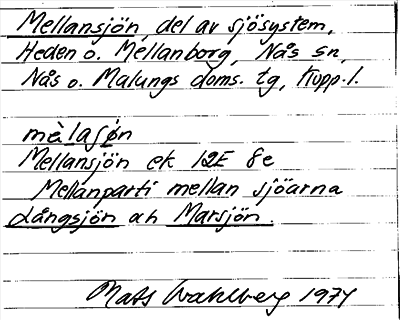 Mellansjön, del av sjösystem,
Heden o. Mellanborg, Nås sn,
Nås o. Malungs doms. tg, Kopp. l.
mèlasjøn
Mellansjön ek 12E 8e
Mellanparti mellan sjöarna
Långsjön och Marsjön.
Mats Wahlberg 1974